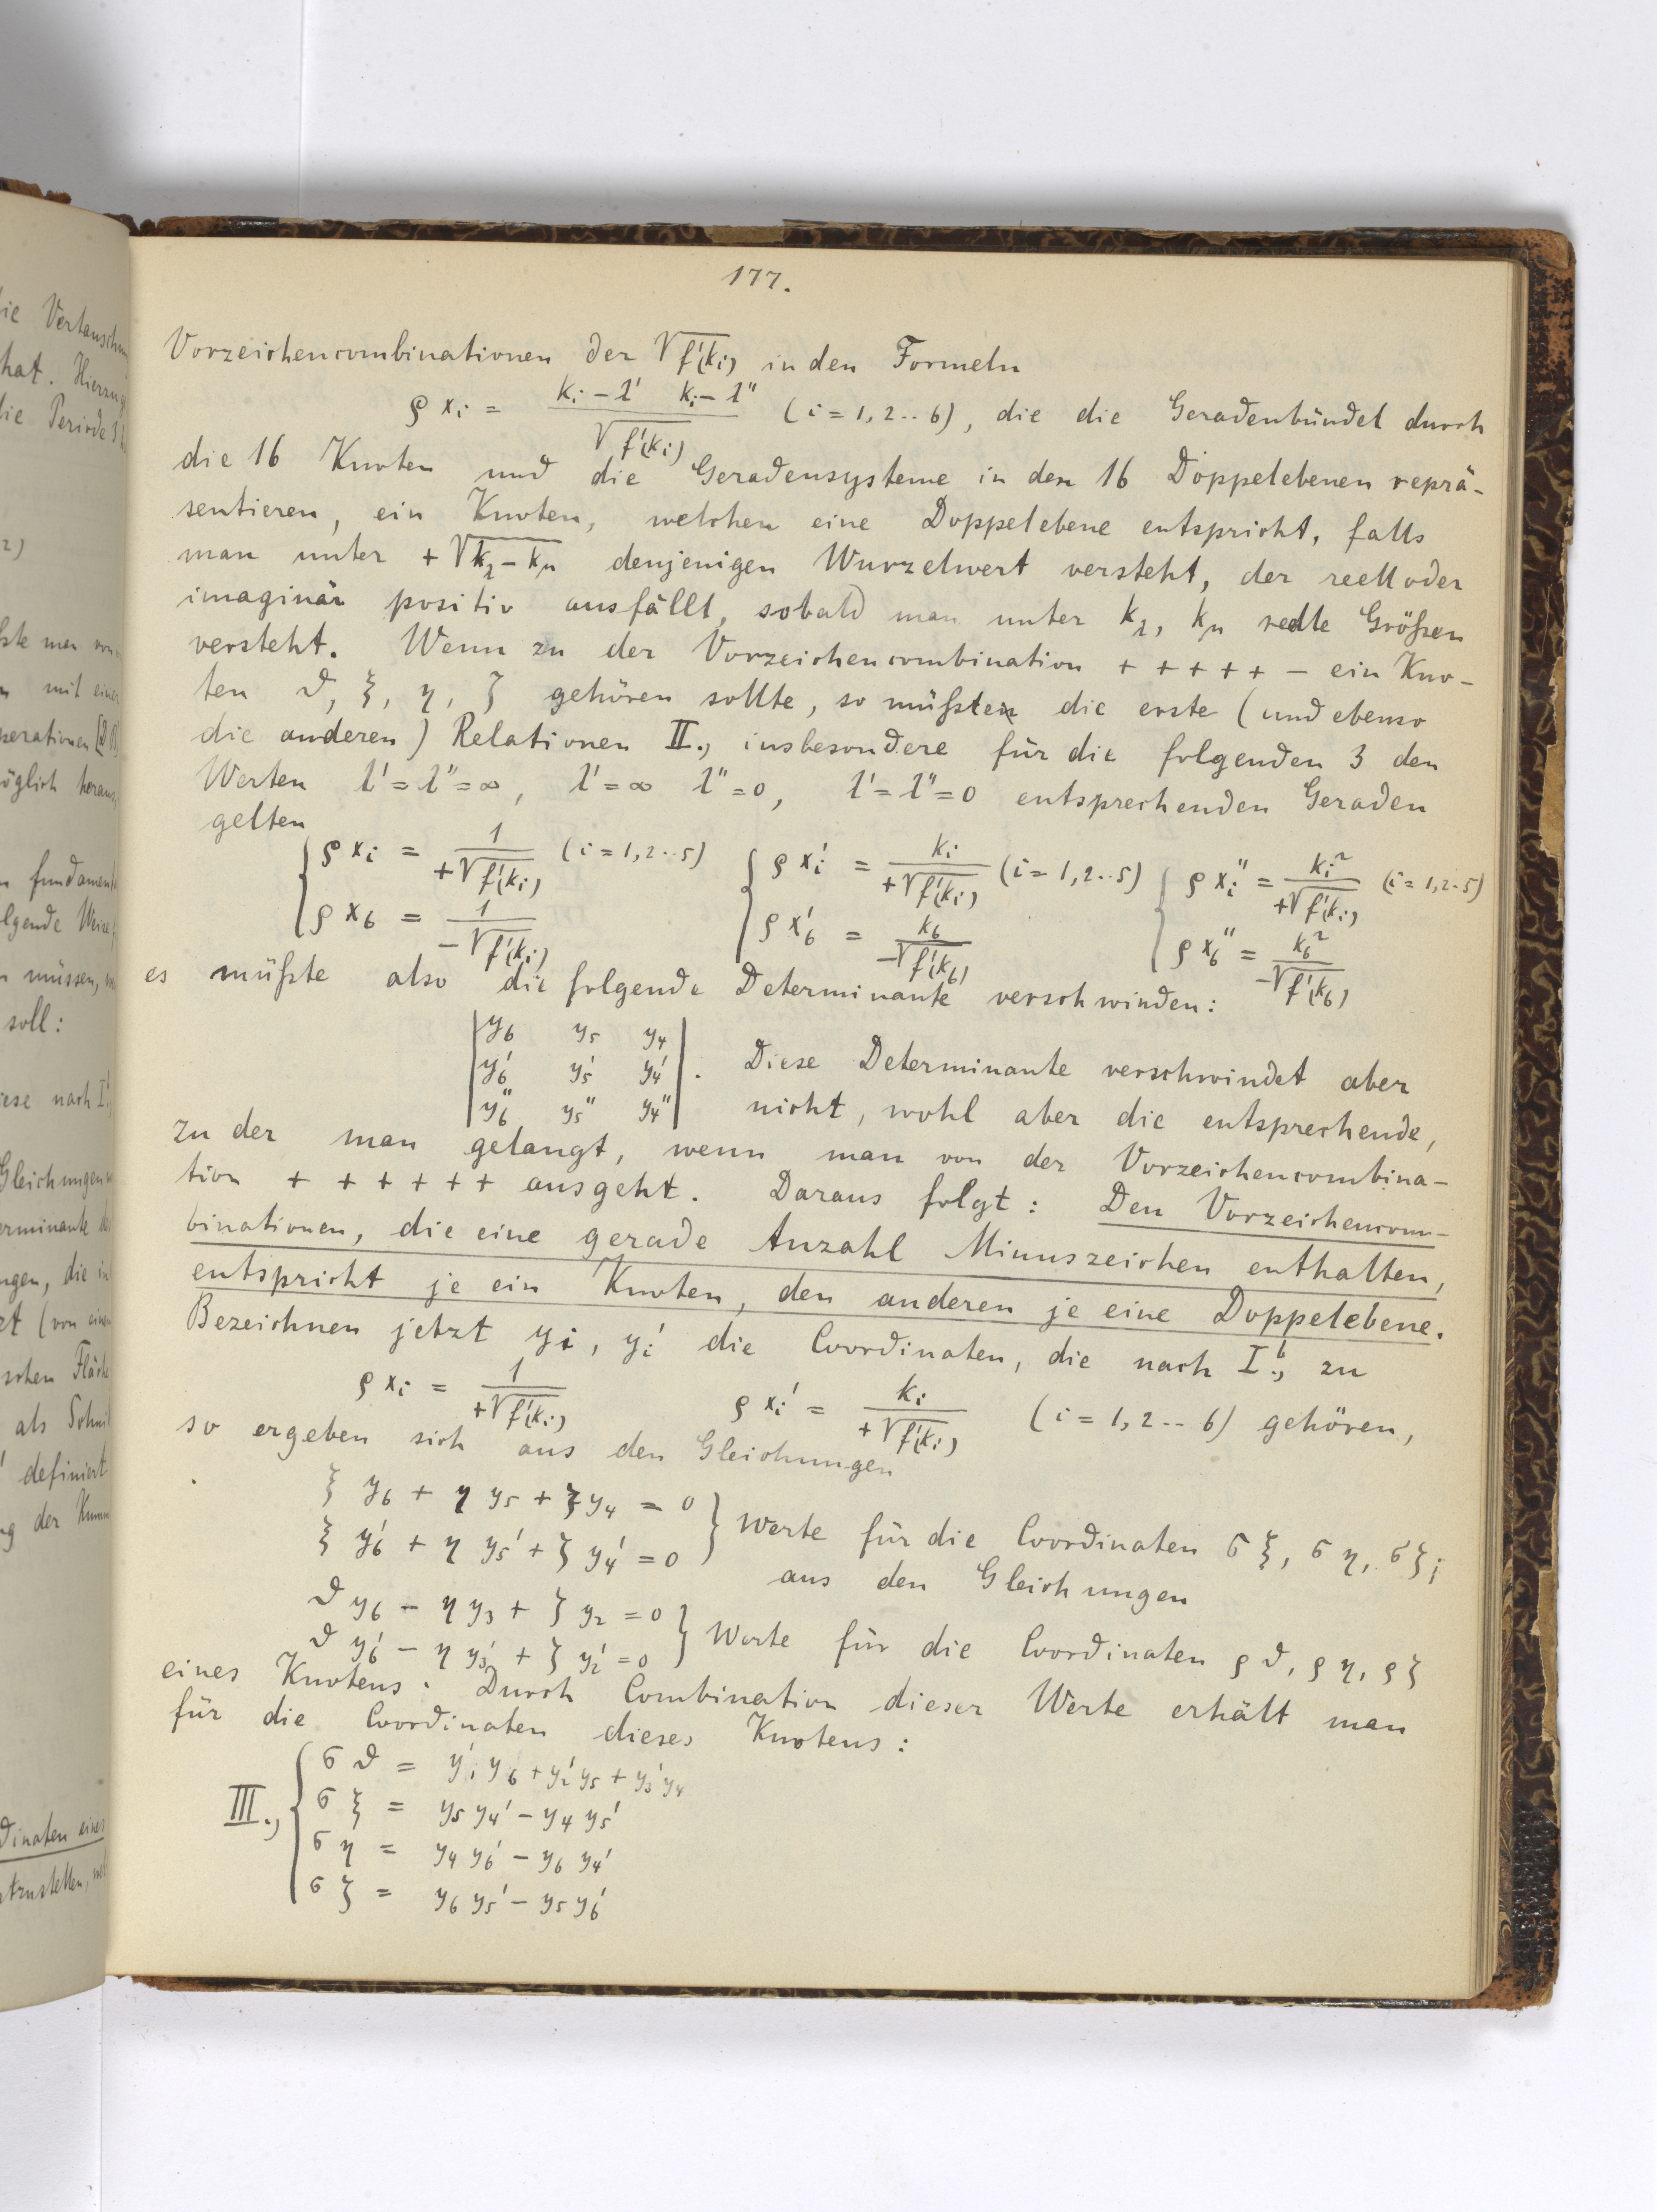 177.
Vorzeichencombinationen der √f'(ki) in den Formeln
ρ xi = (ki – l' ki – l'') / √f'(ki) (i = 1, 2 .. 6), die die Geradenbündel durch
die 16 Knoten und die Geradensysteme in den 16 Doppelebenen reprä-
sentieren, ein Knoten, welchen eine Doppelebene entspricht, falls
man unter + √kλ – kμ denjenigen Wurzelwert versteht, der reell oder
imaginär positiv ausfällt, sobald man unter kλ, kμ reelle Größen
versteht. Wenn zu der Vorzeichencombination + + + + + – ein Kno-
ten ϑ, ξ, η, ζ gehören sollte, so müßten die erste (und ebenso
die anderen) Relationen II., insbesondere für die folgenden 3 den
Werten l' = l'' = ∞, l' = ∞ l'' = 0, l' = l'' = 0 entsprechenden Geraden
gelten
ρ xi = 1 / +√f'(ki) (i = 1, 2 .. 5) ρ xi' = ki / +√f'(ki) (i = 1, 2 .. 5) ρ xi'' = ki² / +√f'(ki) (i = 1, 2 .. 5)
ρ x6 = 1 / –√f'(ki) ρ x6' = k6 / –√f'(k6) ρ x6'' = k6² / –√f'(k6)
es müßte also die folgende Determinante verschwinden:
| y6 y5 y4 |
| y6' y5' y4' | . Diese Determinante verschwindet aber
| y6'' y5'' y4'' | nicht, wohl aber die entsprechende,
zu der man gelangt, wenn man von der Vorzeichencombina-
tion + + + + + + ausgeht. Daraus folgt: Den Vorzeichencom-
binationen, die eine gerade Anzahl Minuszeichen enthalten,
entspricht je ein Knoten, den anderen je eine Doppelebene.
Bezeichnen jetzt yi, yi' die Coordinaten, die nach I.ᵇ, zu
ρ xi = 1 / +√f'(ki) ρ xi' = ki / +√f'(ki) (i = 1, 2 .. 6) gehören,
so ergeben sich aus den Gleichungen
ξ y6 + η y5 + ζ y4 = 0
ξ y6' + η y5' + ζ y4' = 0 } Werte für die Coordinaten σξ, ση, σζ;
aus den Gleichungen
ϑ y6 – η y3 + ζ y2 = 0
ϑ y6' – η y3' + ζ y2' = 0 } Werte für die Coordinaten ρϑ, ρη, ρζ
eines Knotens. Durch Combination dieser Werte erhält man
für die Coordinaten dieses Knotens:
σϑ = y1' y6 + y2' y5 + y3' y4
III., σξ = y5 y4' – y4 y5'
ση = y4 y6' – y6 y4'
σζ = y6 y5' – y5 y6'